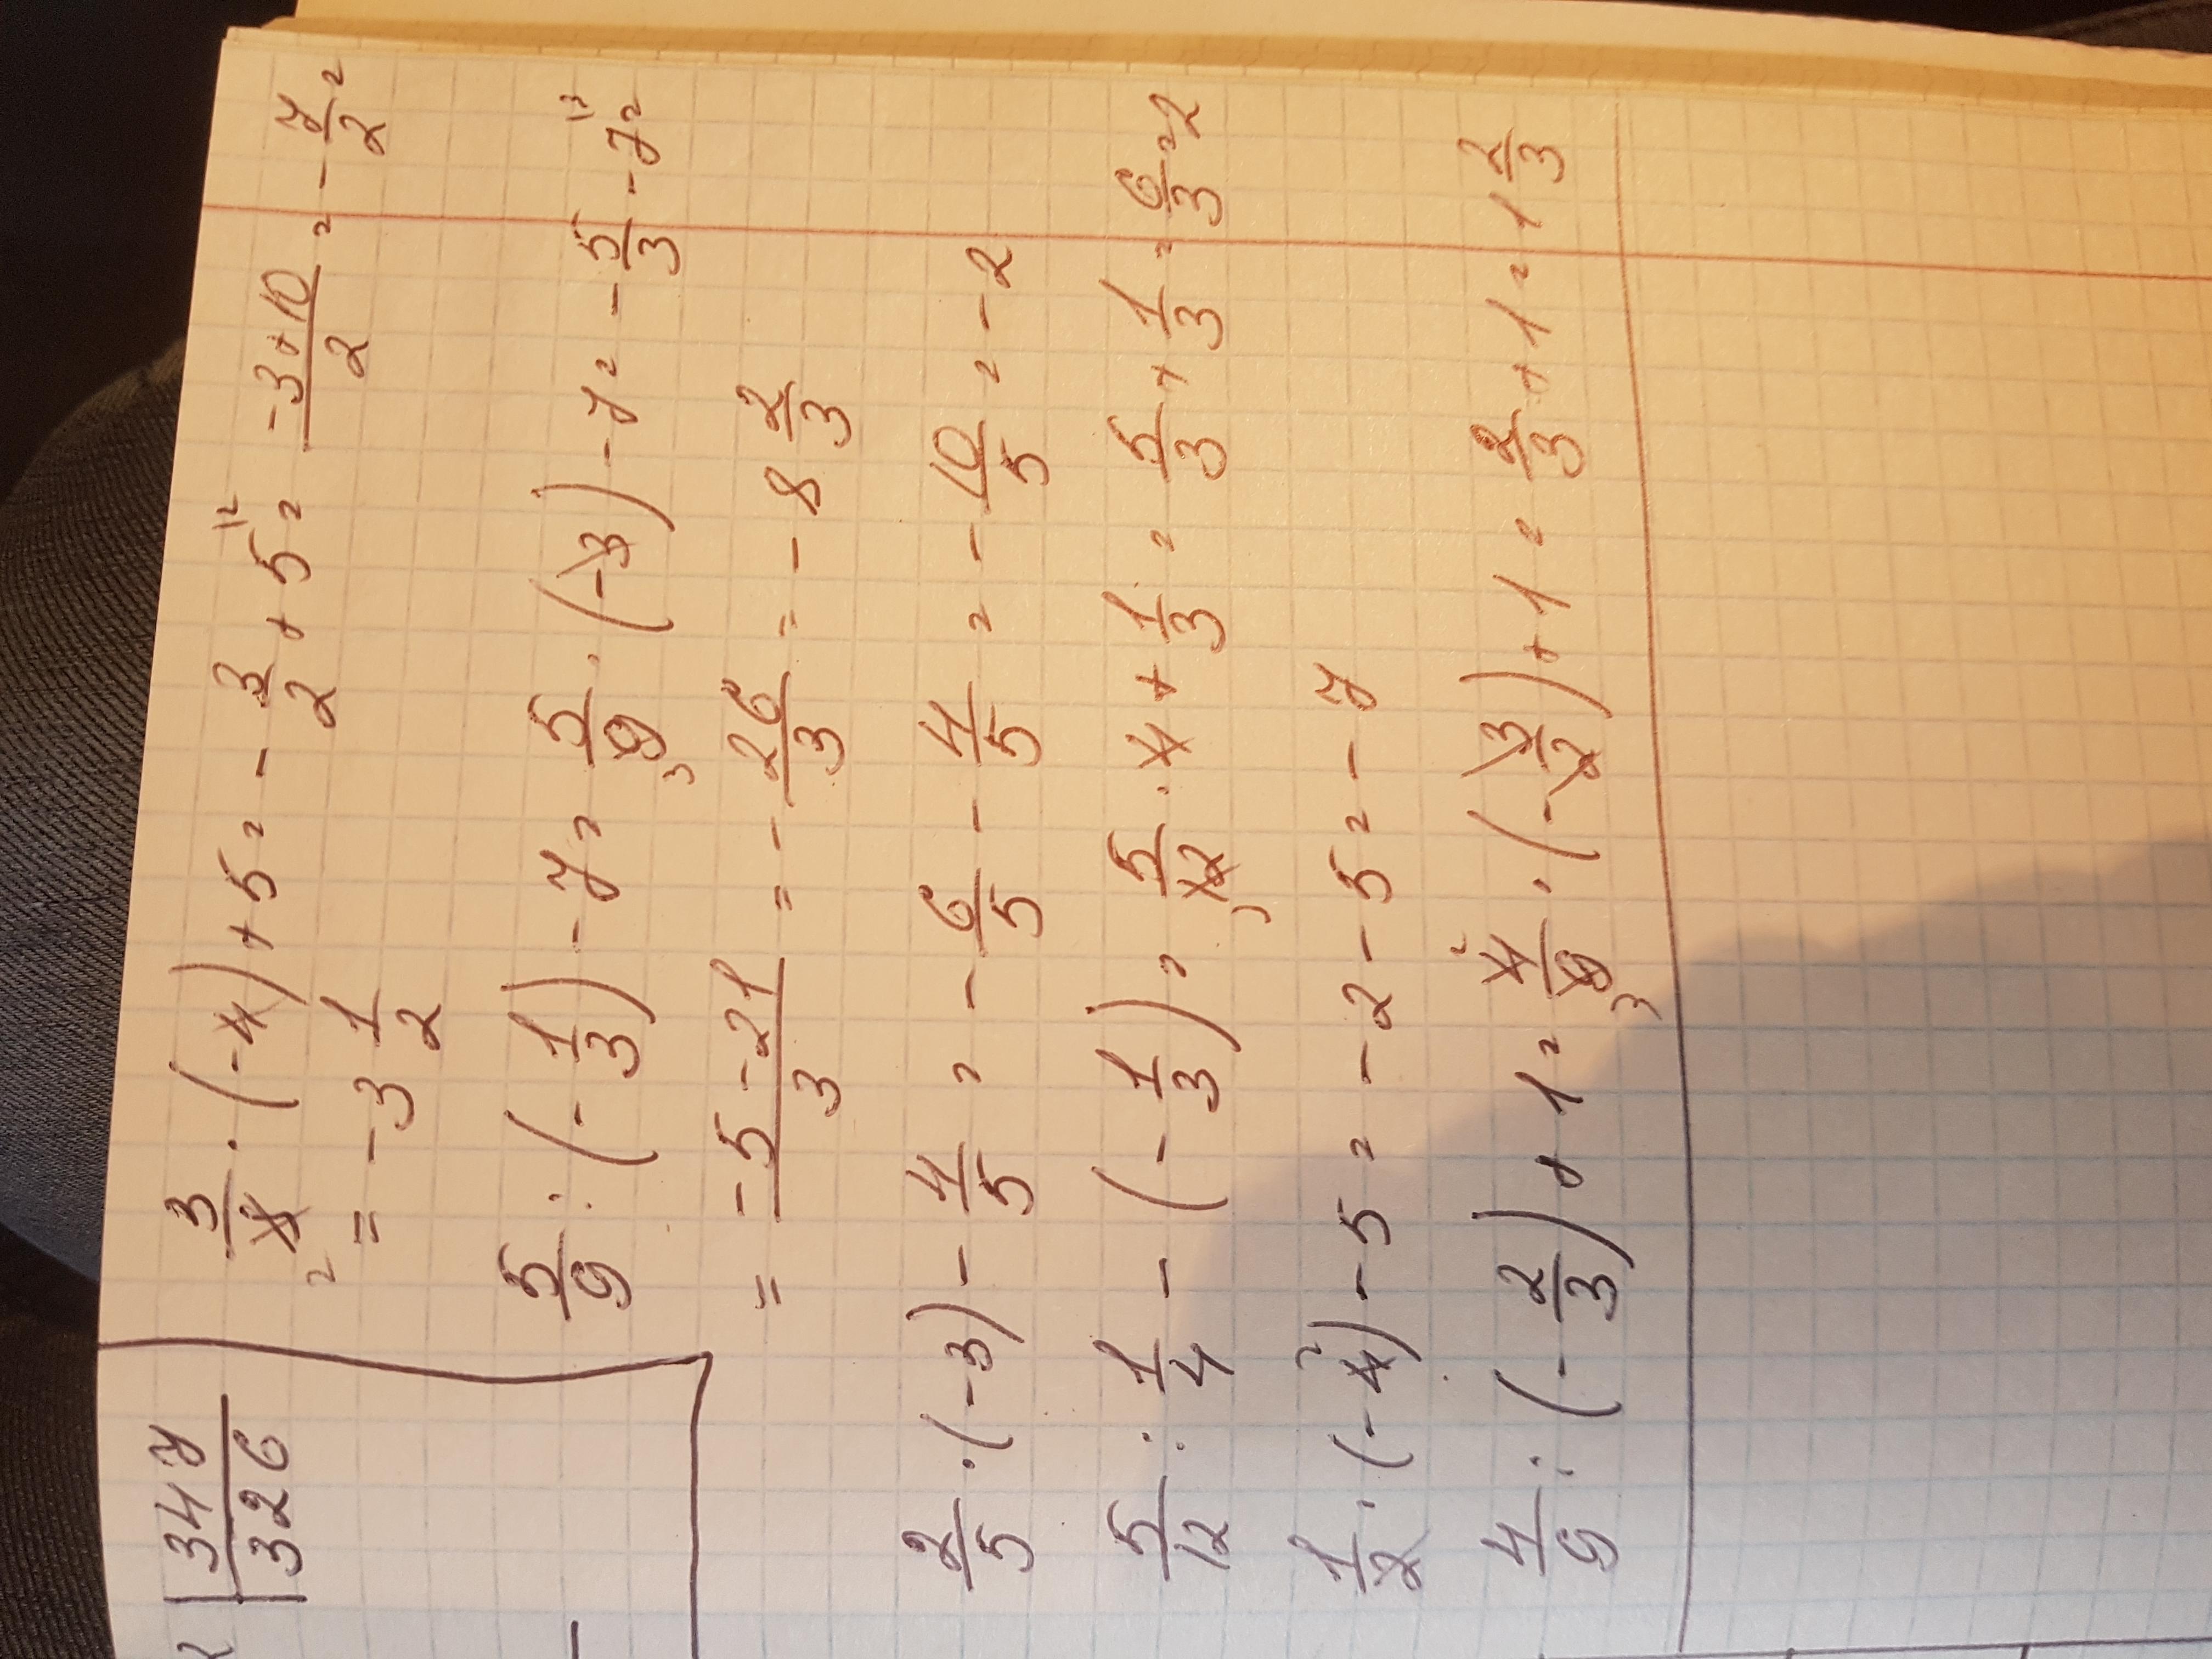 347
326
3/8 · (-4) + 5 = - 3/2 + 5 = (-3+10)/2 = - 7/2 =
= - 3 1/2
5/9 : (- 1/3) - 7 = 5/9 · (-3) - 7 = - 5/3 - 7 =
= (-5-21)/3 = - 26/3 = - 8 2/3
2/5 · (-3) - 4/5 = - 6/5 - 4/5 = - 10/5 = -2
5/12 : 1/4 - (- 1/3) = 5/12 · 4 + 1/3 = 5/3 + 1/3 = 6/3 = 2
1/2 · (-4) - 5 = -2 - 5 = -7
4/9 : (- 2/3) + 1 = 4/9 · (- 3/2) + 1 = 2/3 + 1 = 1 2/3